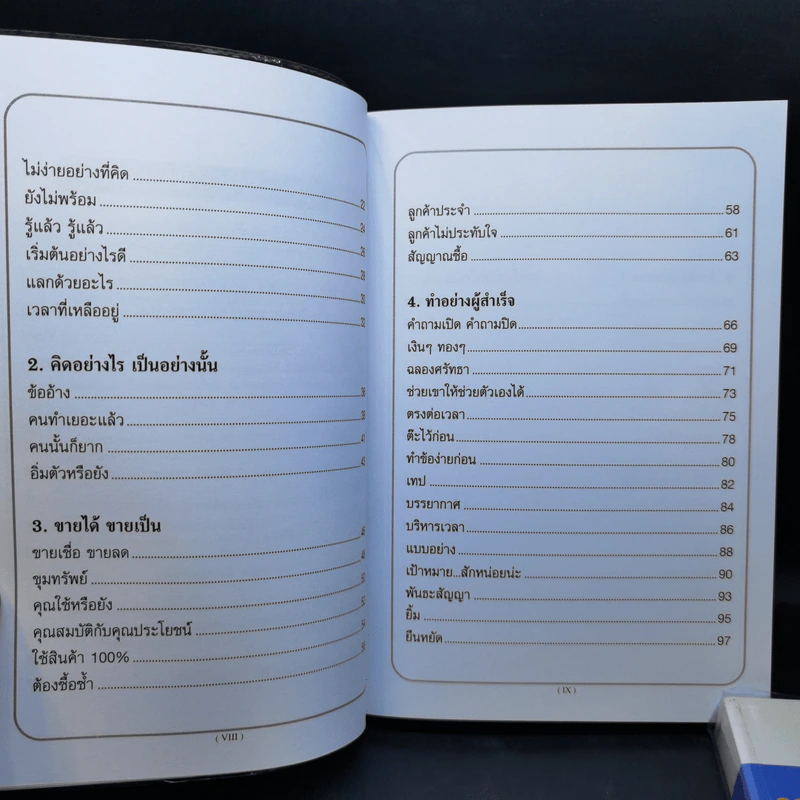 ไม่ง่ายอย่างที่คิด
ยังไม่พร้อม 22
รู้แล้ว รู้แล้ว 24
เริ่มต้นอย่างไรดี 26
แลกด้วยอะไร 28
เวลาที่เหลืออยู่ 30
32
2. คิดอย่างไร เป็นอย่างนั้น
ข้ออ้าง 36
คนทำเยอะแล้ว 39
คนนั้นก็ยาก 41
อิ่มตัวหรือยัง 43
3. ขายได้ ขายเป็น
ขายเชื่อ ขายลด 46
ขุมทรัพย์ 48
คุณใช้หรือยัง 50
คุณสมบัติกับคุณประโยชน์ 52
ใช้สินค้า 100% 54
ต้องซื้อซ้ำ 56
( VIII )
ลูกค้าประจำ 58
ลูกค้าไม่ประทับใจ 61
สัญญาณซื้อ 63
4. ทำอย่างผู้สำเร็จ
คำถามเปิด คำถามปิด 66
เงินๆ ทองๆ 69
ฉลองศรัทธา 71
ช่วยเขาให้ช่วยตัวเองได้ 73
ตรงต่อเวลา 75
ต๊ะไว้ก่อน 78
ทำข้อง่ายก่อน 80
เทป 82
บรรยากาศ 84
บริหารเวลา 86
แบบอย่าง 88
เป้าหมาย...สักหน่อยน่ะ 90
พันธะสัญญา 93
ยิ้ม 95
ยืนหยัด 97
( IX )